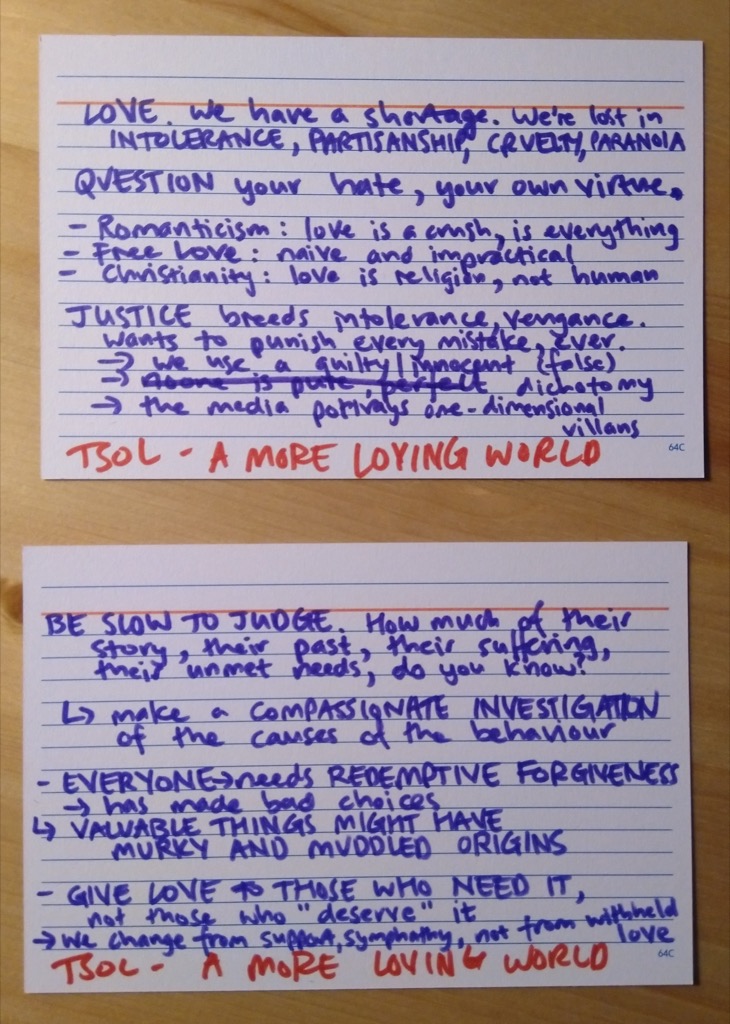 LOVE. We have a shortage. We're lost in
INTOLERANCE, PARTISANSHIP, CRUELTY, PARANOIA
QUESTION your hate, your own virtue.
- Romanticism: love is a crush, is everything
- Free Love: naive and impractical
- Christianity: love is religion, not human
JUSTICE breeds intolerance, vengance.
wants to punish every mistake, ever.
→ we use a guilty/innocent (false)
→ Noone is pure, perfect dichotomy
→ the media portrays one-dimensional
villans
64C
TSOL - A MORE LOVING WORLD
BE SLOW TO JUDGE. How much of their
story, their past, their suffering,
their unmet needs, do you know?
↳ make a COMPASSIONATE INVESTIGATION
of the causes of the behaviour
- EVERYONE → needs REDEMPTIVE FORGIVENESS
→ has made bad choices
↳ VALUABLE THINGS MIGHT HAVE
MURKY AND MUDDLED ORIGINS
- GIVE LOVE TO THOSE WHO NEED IT,
not those who "deserve" it
→ We change from support, symphathy, not from withheld
love
64C
TSOL - A MORE LOVING WORLD